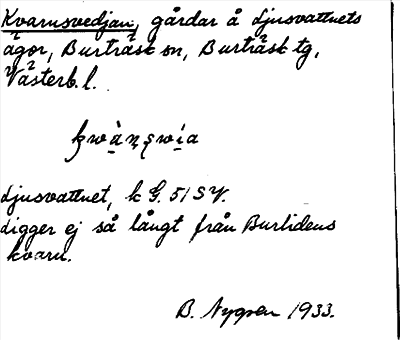 Kvarnsvedjan, gårdar å Ljusvattnets
ägor, Burträsk sn, Burträsk tg,
Västerb. l.
kwàṇṣwia
Ljusvattnet, k G. 51 SV.
Ligger ej så långt från Burlidens
kvarn.
B. Nygren 1933.